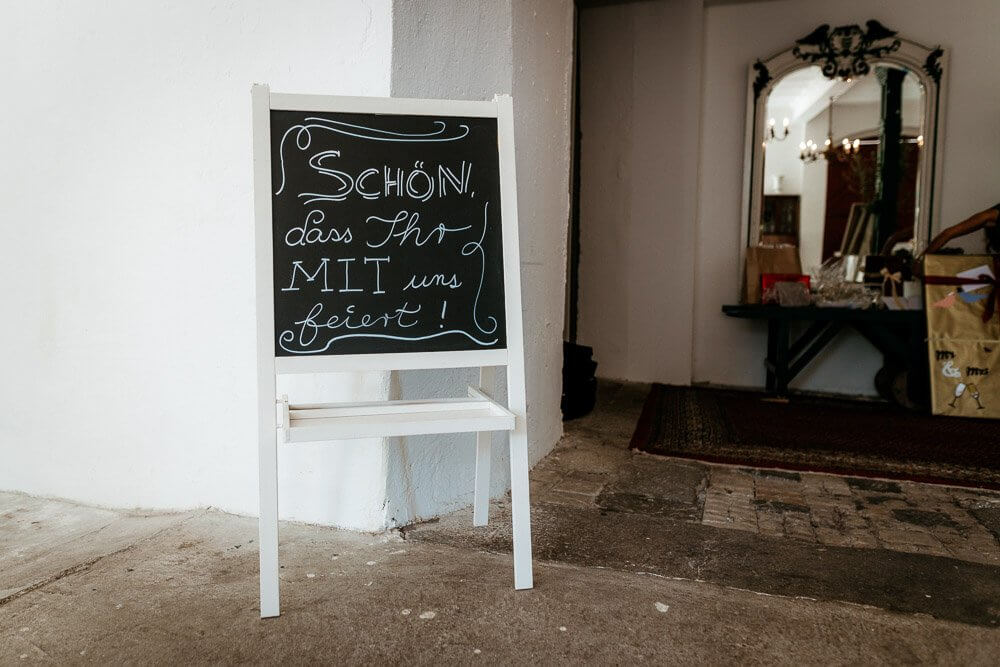 SCHÖN,
dass Ihr
MIT uns
feiert!
Mr
& Mrs